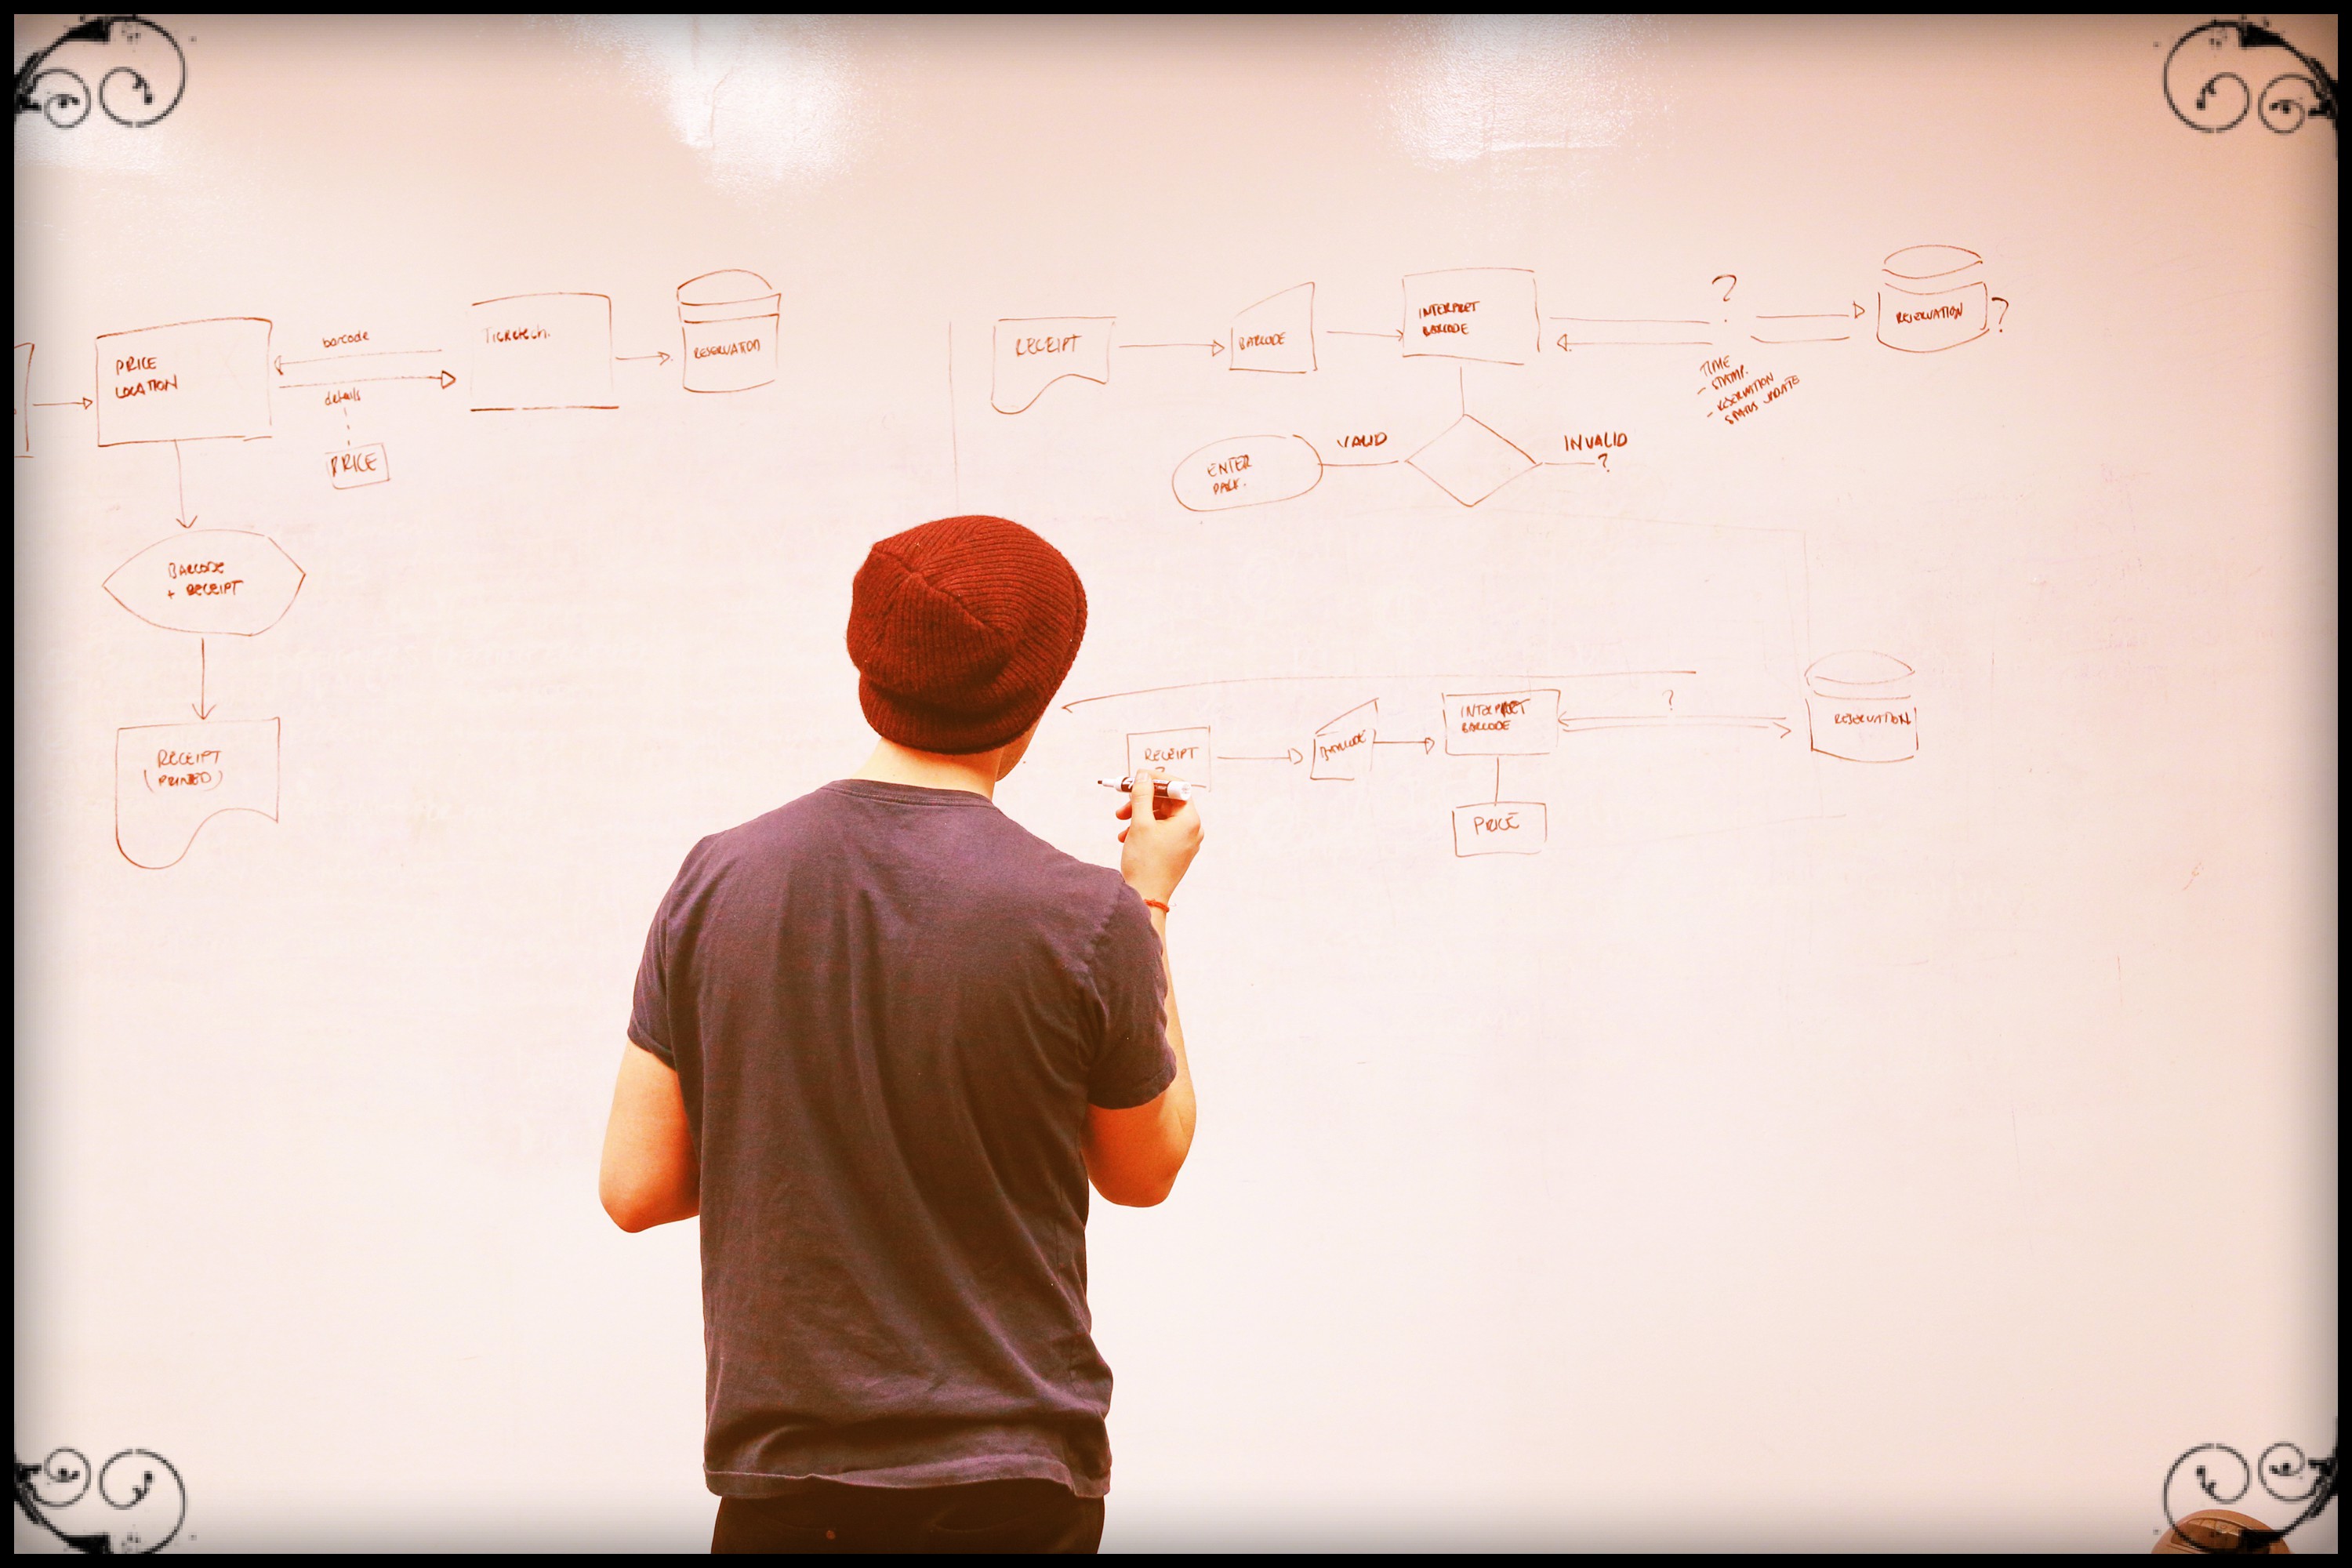 PRICE
LOCATION
barcode
details
PRICE
Ticketech.
RESERVATION
BARCODE
+ RECEIPT
RECEIPT
(PRINTED)
RECEIPT
BARCODE
INTERPRET
BARCODE
?
TIME
- STAMP.
- RESERVATION
STATUS UPDATE
RESERVATION
?
VALID
INVALID
?
ENTER
PARK.
RECEIPT
?
BARCODE
INTERPRET
BARCODE
?
RESERVATION
PRICE